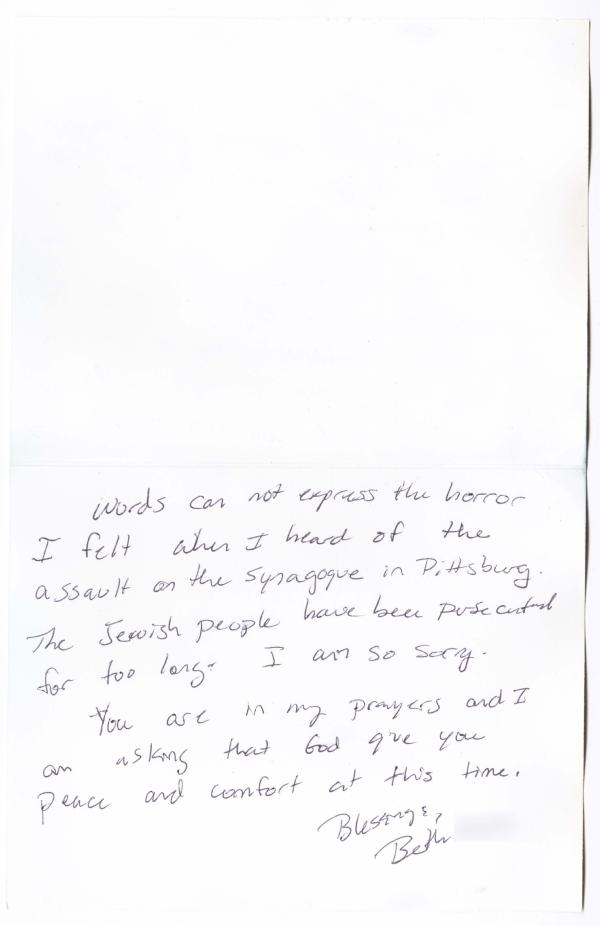 Words can not express the horror
I felt when I heard of the
assault on the Synagogue in Pittsburg.
The Jewish people have been persecuted
for too long. I am so sorry.
You are in my prayers and I
am asking that God give you
peace and comfort at this time.
Blessings,
Beth